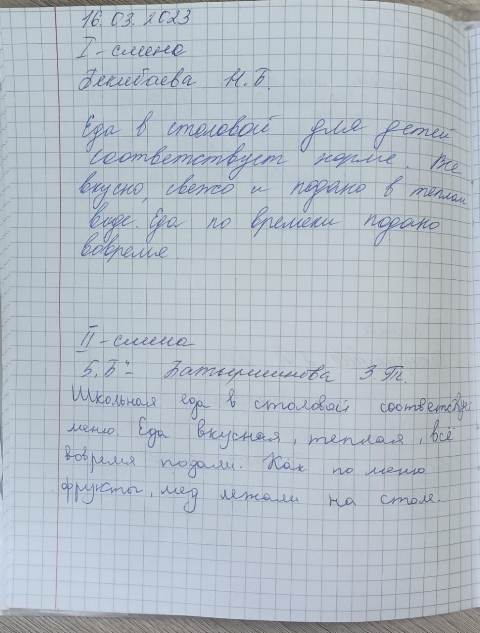 16.03.2023
I-смена
Бекибаева Н.Б.
Еда в столовой для детей
соответствует норме. Все
вкусно, свежо и подано в теплом
виде. Еда по времени подано
вовремя
II-смена
5 "Б" - Батыршинова З.Т.
Школьная еда в столовой соответствует
меню. Еда вкусная, теплая, всё
вовремя подали. Как по меню
фрукты, мёд лежали на столе.